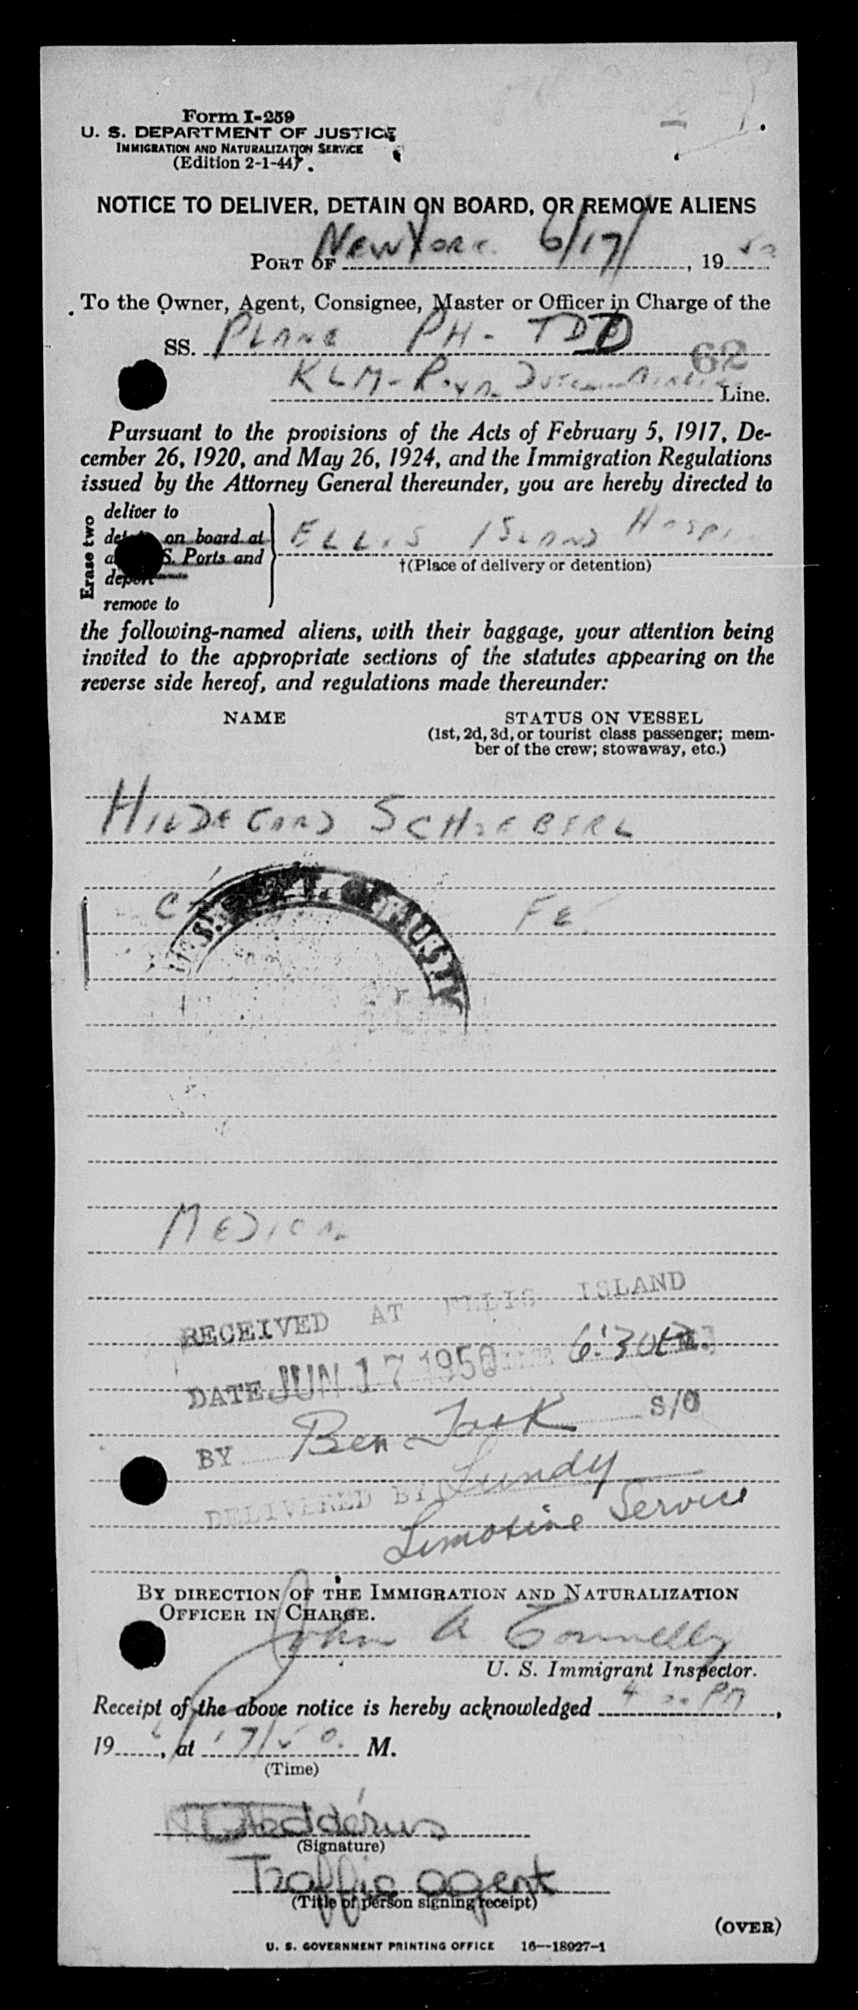 Form I-259
U. S. DEPARTMENT OF JUSTICE
IMMIGRATION AND NATURALIZATION SERVICE
(Edition 2-1-44)
NOTICE TO DELIVER, DETAIN ON BOARD, OR REMOVE ALIENS
PORT OF New York 6/17/, 19 50
To the Owner, Agent, Consignee, Master or Officer in Charge of the
SS. PLANE PH - TDD
62
KLM - Royal Dutch Airlines Line.
Pursuant to the provisions of the Acts of February 5, 1917, De-
cember 26, 1920, and May 26, 1924, and the Immigration Regulations
issued by the Attorney General thereunder, you are hereby directed to
Erase two
deliver to
on board at
S. Ports and
deport
remove to
ELLIS ISLAND HOSPI
†(Place of delivery or detention)
the following-named aliens, with their baggage, your attention being
invited to the appropriate sections of the statutes appearing on the
reverse side hereof, and regulations made thereunder:
NAME STATUS ON VESSEL
(1st, 2d, 3d, or tourist class passenger; mem-
ber of the crew; stowaway, etc.)
HILDEGARD
MEDICAL
RECEIVED AT ELLIS ISLAND
DATE JUN 17 1950 6:30 P.M.
BY Ben S/O
DELIVERED BY Lundy
Limosine Service
BY DIRECTION OF THE IMMIGRATION AND NATURALIZATION
OFFICER IN CHARGE.
John A Connelly
U. S. Immigrant Inspector.
Receipt of the above notice is hereby acknowledged 4 00 PM,
19 6, at 17/50 M.
(Time)
(Signature)
Traffic agent
(Title of person signing receipt)
(OVER)
U. S. GOVERNMENT PRINTING OFFICE 16—18927-1